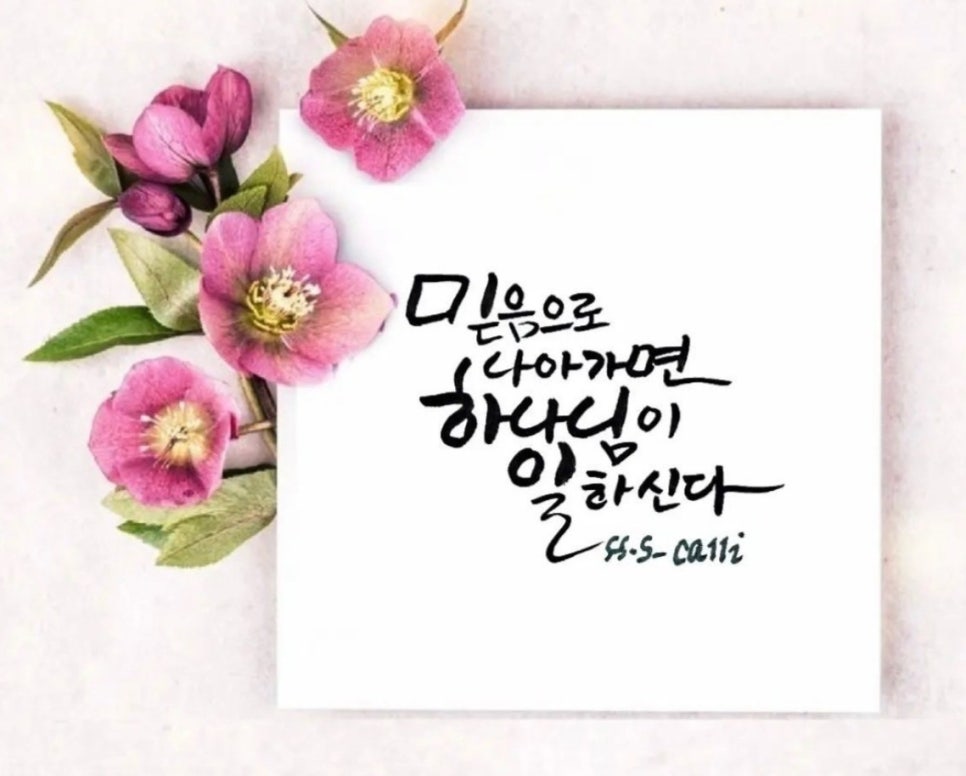 믿음으로
나아가면
하나님이
일하신다
ss.s_calli